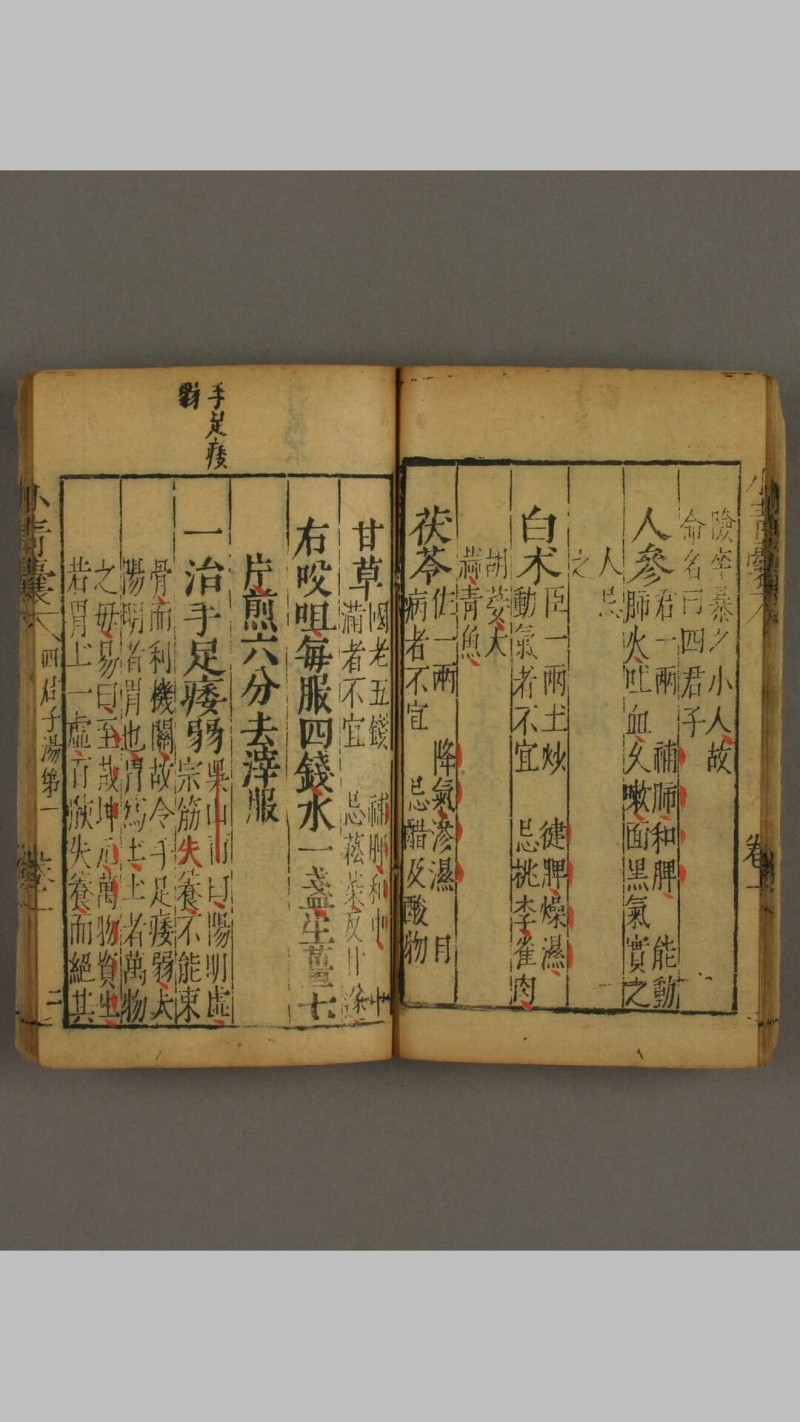 險卒暴之小人故
命名曰四君子
人參 君一兩 補肺和脾 能動
肺火吐血久嗽面黑氣實之
人忌
之
白朮 臣一兩土炒 健脾燥濕
動氣者不宜 忌桃李雀肉
胡荽大
蒜青魚
茯苓 佐一兩 降氣滲濕 目
病者不宜 忌醋及酸物
甘草 國老五錢 補脾和中 中
滿者不宜 忌菘菜反甘遂
右㕮咀每服四錢水一盞生薑七
片煎六分去滓服
一治手足痿弱 吳山甫曰陽明虛
宗筋失養不能束
骨而利機關故令手足痿弱夫
陽明者胃也胃為土土者萬物
之母易曰至哉坤元萬物資生
若胃土一虛百骸失養而絕其
手足痿
小青囊
四君子湯第一
卷一
二